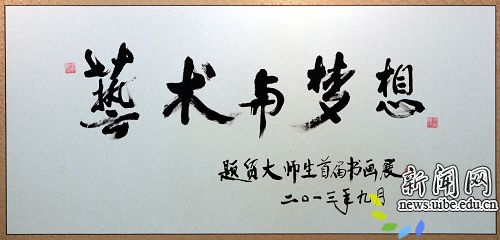 藝术与梦想
题贸大师生首届书画展
二〇一三年九月
新闻网
news.uibe.edu.cn